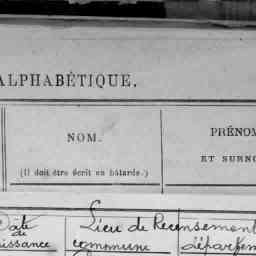 ALPHABÉTIQUE.
NOM.
(Il doit être écrit en bâtarde.)
PRÉNOM
ET SURNO
Date
de
issance
Lieu de Recensement
commune
départem